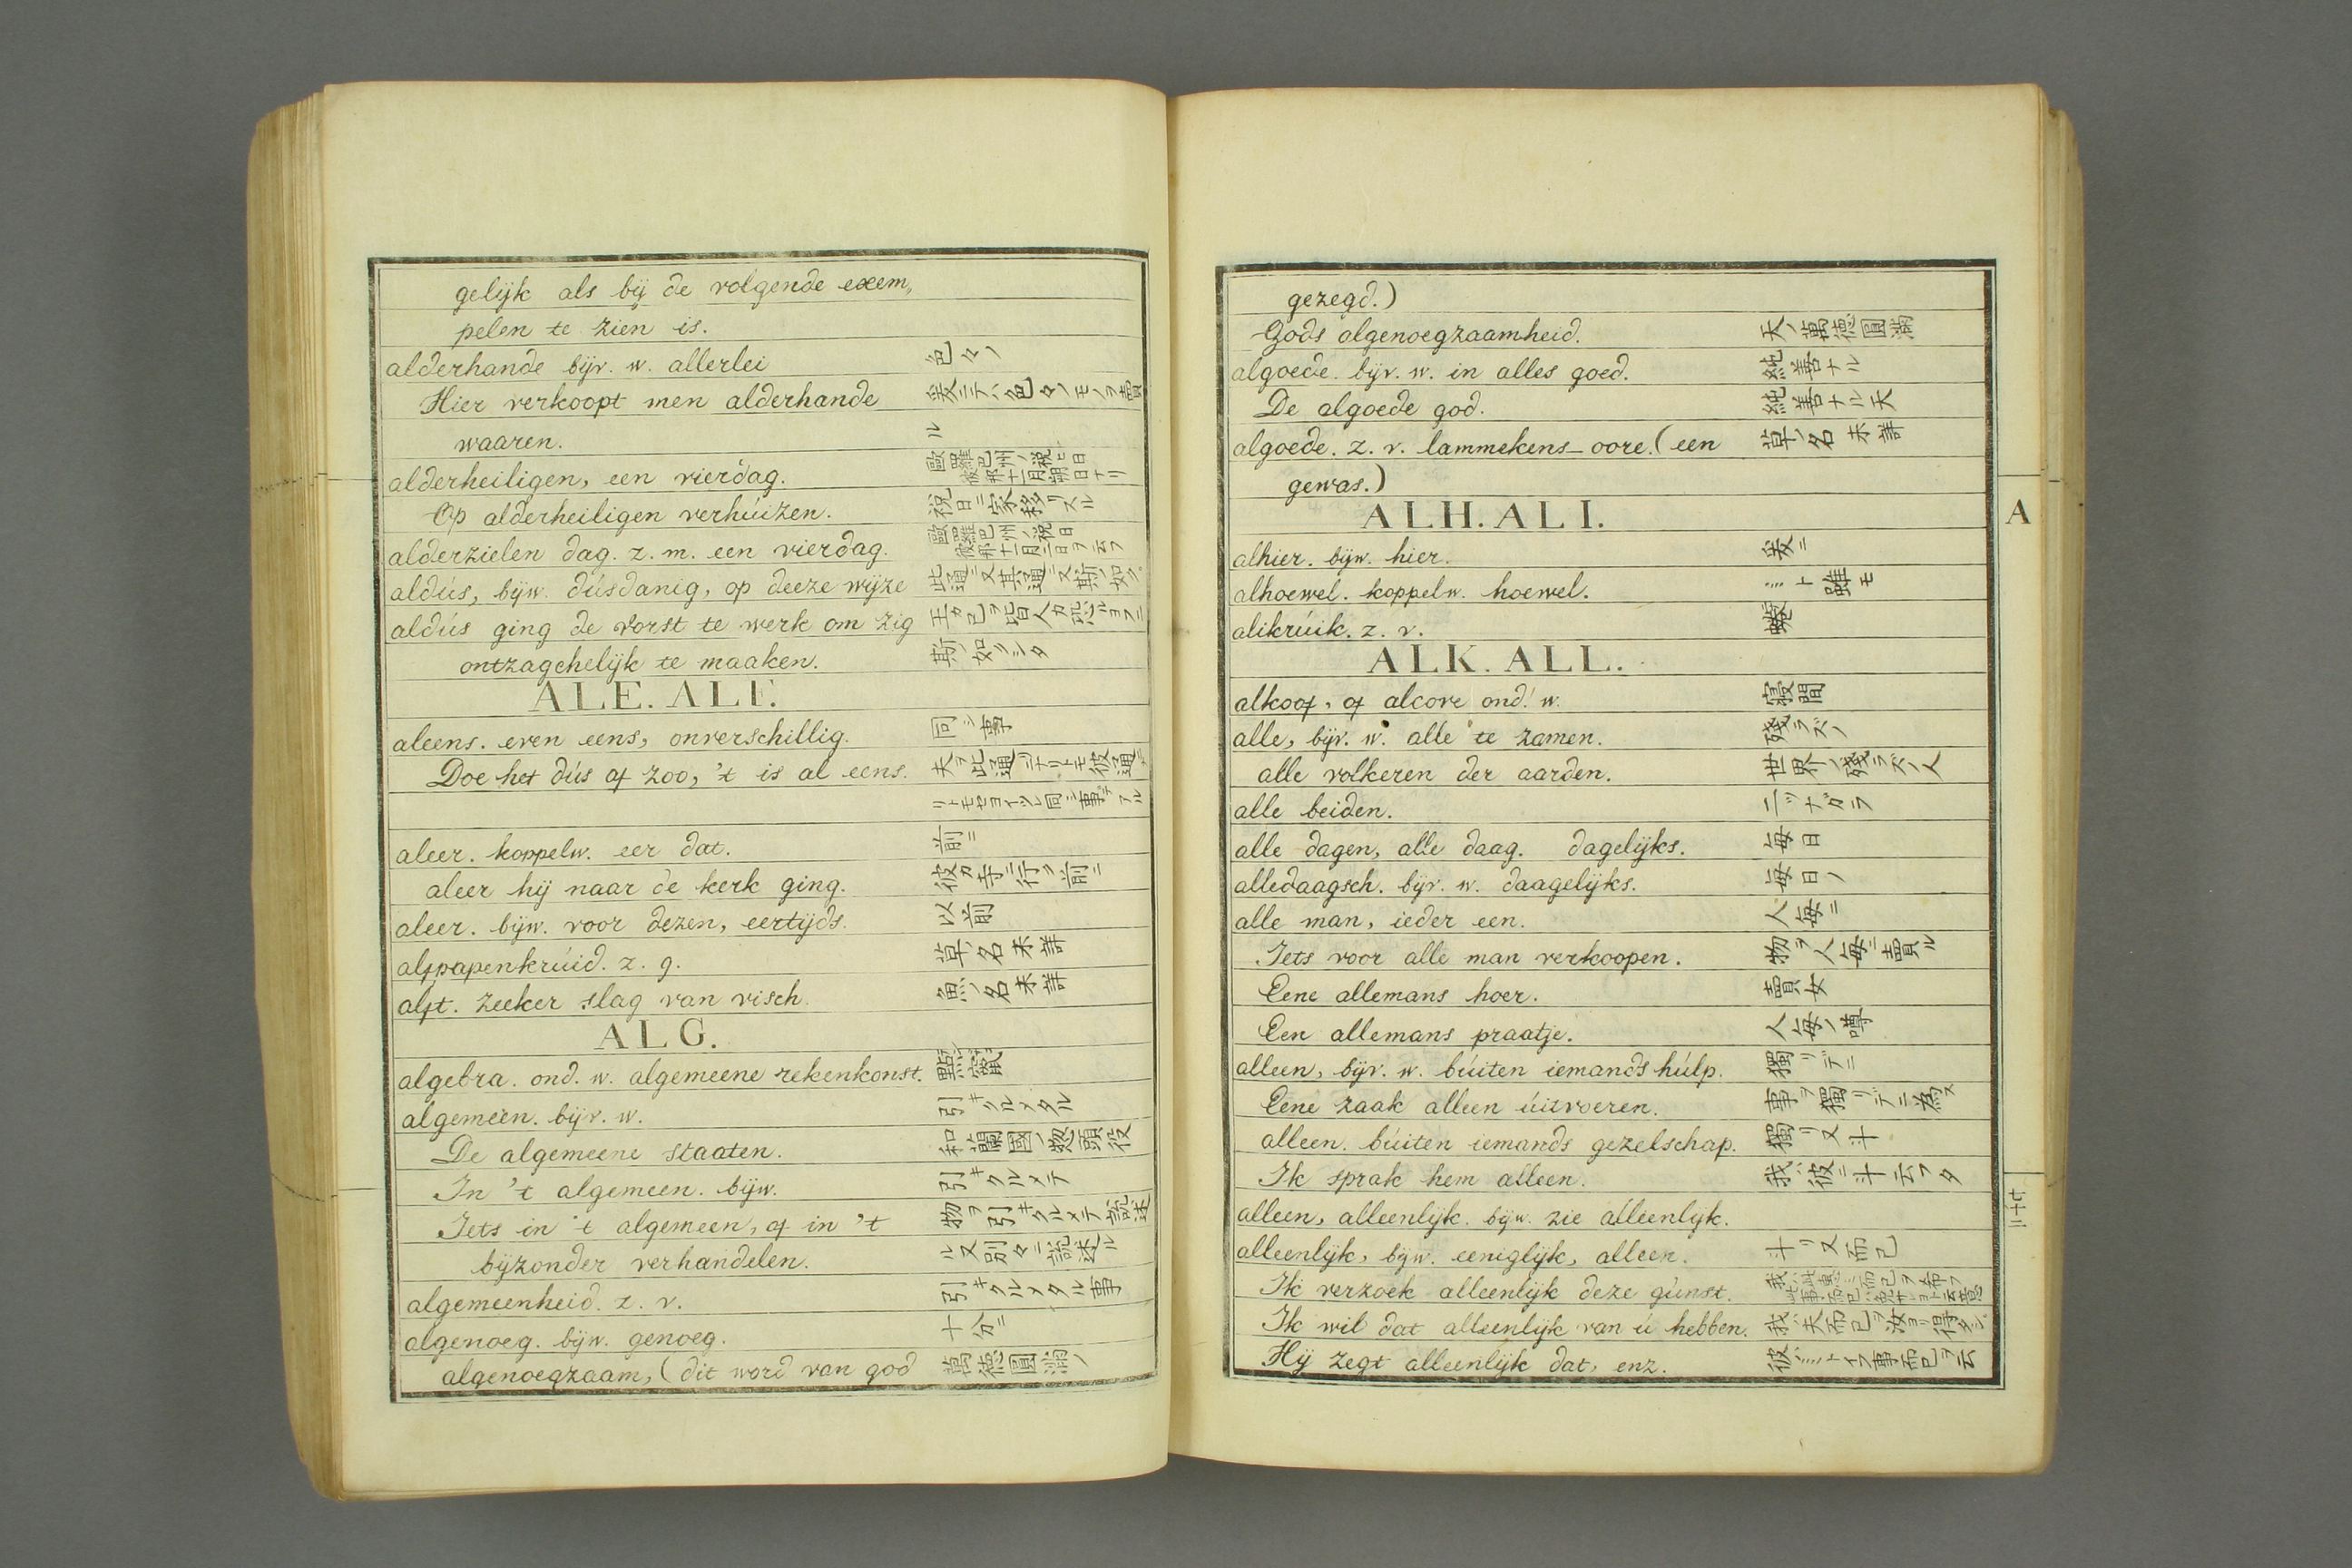 gelijk als bij de volgende exem„
pelen te zien is.
alderhande bijv. w. allerlei 色々ノ
Hier verkoopt men alderhande 爰ニテハ色々ノモノヲ賣
waaren. ル
alderheiligen, een vierdag. 歐羅巴州ノ祝ヒ日
彼邦十一月朔日ナリ
Op alderheiligen verhúizen. 祝日ニ家移リスル
alderzielen dag. z. m. een vierdag. 歐羅巴州ノ祝日
彼邦十一月二日ヲ云フ
aldús, bijw. dúsdanig, op deeze wijze 此通ニ又其通ニ又斯ノ如ク
aldús ging de vorst te werk om zig 王カ己ヲ皆人カ恐ルヨフニ
ontzagchelijk te maaken. 斯ノ如クシタ
ALE. ALF.
aleens. even eens, onverschillig. 同シ事
Doe het dús of zoo, 't is al eens. 夫ヲ此通リナリトモ彼通ナ
リトモセヨイツレ同シ事デアル
aleer. koppelw. eer dat. 前ニ
aleer hij naar de kerk ging. 彼カ寺ニ行ク前ニ
aleer. bijw. voor dezen, eertijds. 以前
alfpapenkrúid. z. g. 草ノ名未詳
alft. zeeker slag van visch. 魚ノ名未詳
ALG.
algebra. ond. w. algemeene rekenkonst. 點竄
algemeen. bijv. w. 引キクルメタル
De algemeene staaten. 和蘭國ノ惣頭役
In 't algemeen. bijw. 引キクルメテ
Iets in 't algemeen, of in 't 物ヲ引キクルメテ説述
bijzonder verhandelen. ル又別々ニ説述ル
algemeenheid. z. v. 引キクルメタル事
algenoeg. bijw. genoeg. 十分ニ
algenoegzaam, (dit word van god 萬德圓滿ノ
gezegd.)
Gods algenoegzaamheid. 天ノ萬德圓滿
algoede. bijv. w. in alles goed. 純善ナル
De algoede god. 純善ナル天
algoede. z. v. lammekens-oore. (een 草ノ名未詳
gewas.)
ALH. ALI.
A
alhier. bijw. hier. 爰ニ
alhoewel. koppelw. hoewel. …ト雖モ
alikrúik. z. v.
ALK. ALL.
alkoof, of alcove ond. w. 寝間
alle, bijv. w. alle te zamen. 殘ラズノ
alle volkeren der aarden. 世界ノ殘ラズノ人
alle beiden. 二ツナガラ
alle dagen, alle daag. dagelijks. 毎日
alledaagsch. bijv. w. daagelijks. 毎日ノ
alle man, ieder een. 人毎ニ
Iets voor alle man verkoopen. 物ヲ人毎ニ賣ル
Eene allemans hoer. 賣女
Een allemans praatje. 人毎ノ噂
alleen, bijv. w. búiten iemands húlp. 獨リデニ
Eene zaak alleen úitvoeren. 事ヲ獨リデニ為ス
alleen. búiten iemands gezelschap. 獨リ又斗
Ik sprak hem alleen. 我ハ彼ニ斗云フタ
alleen, alleenlijk. bijw. zie alleenlijk.
alleenlijk, bijw. eeniglijk, alleen. 斗リ又而已
Ik verzoek alleenlijk deze gúnst. 我ハ此惠ミ而已ヲ希フ
Ik wil dat alleenlijk van ú hebben. 我ハ夫而已ヲ汝ヨリ得タシ
Hij zegt alleenlijk dat, enz. 彼ハ…トイフ事而已ヲ云